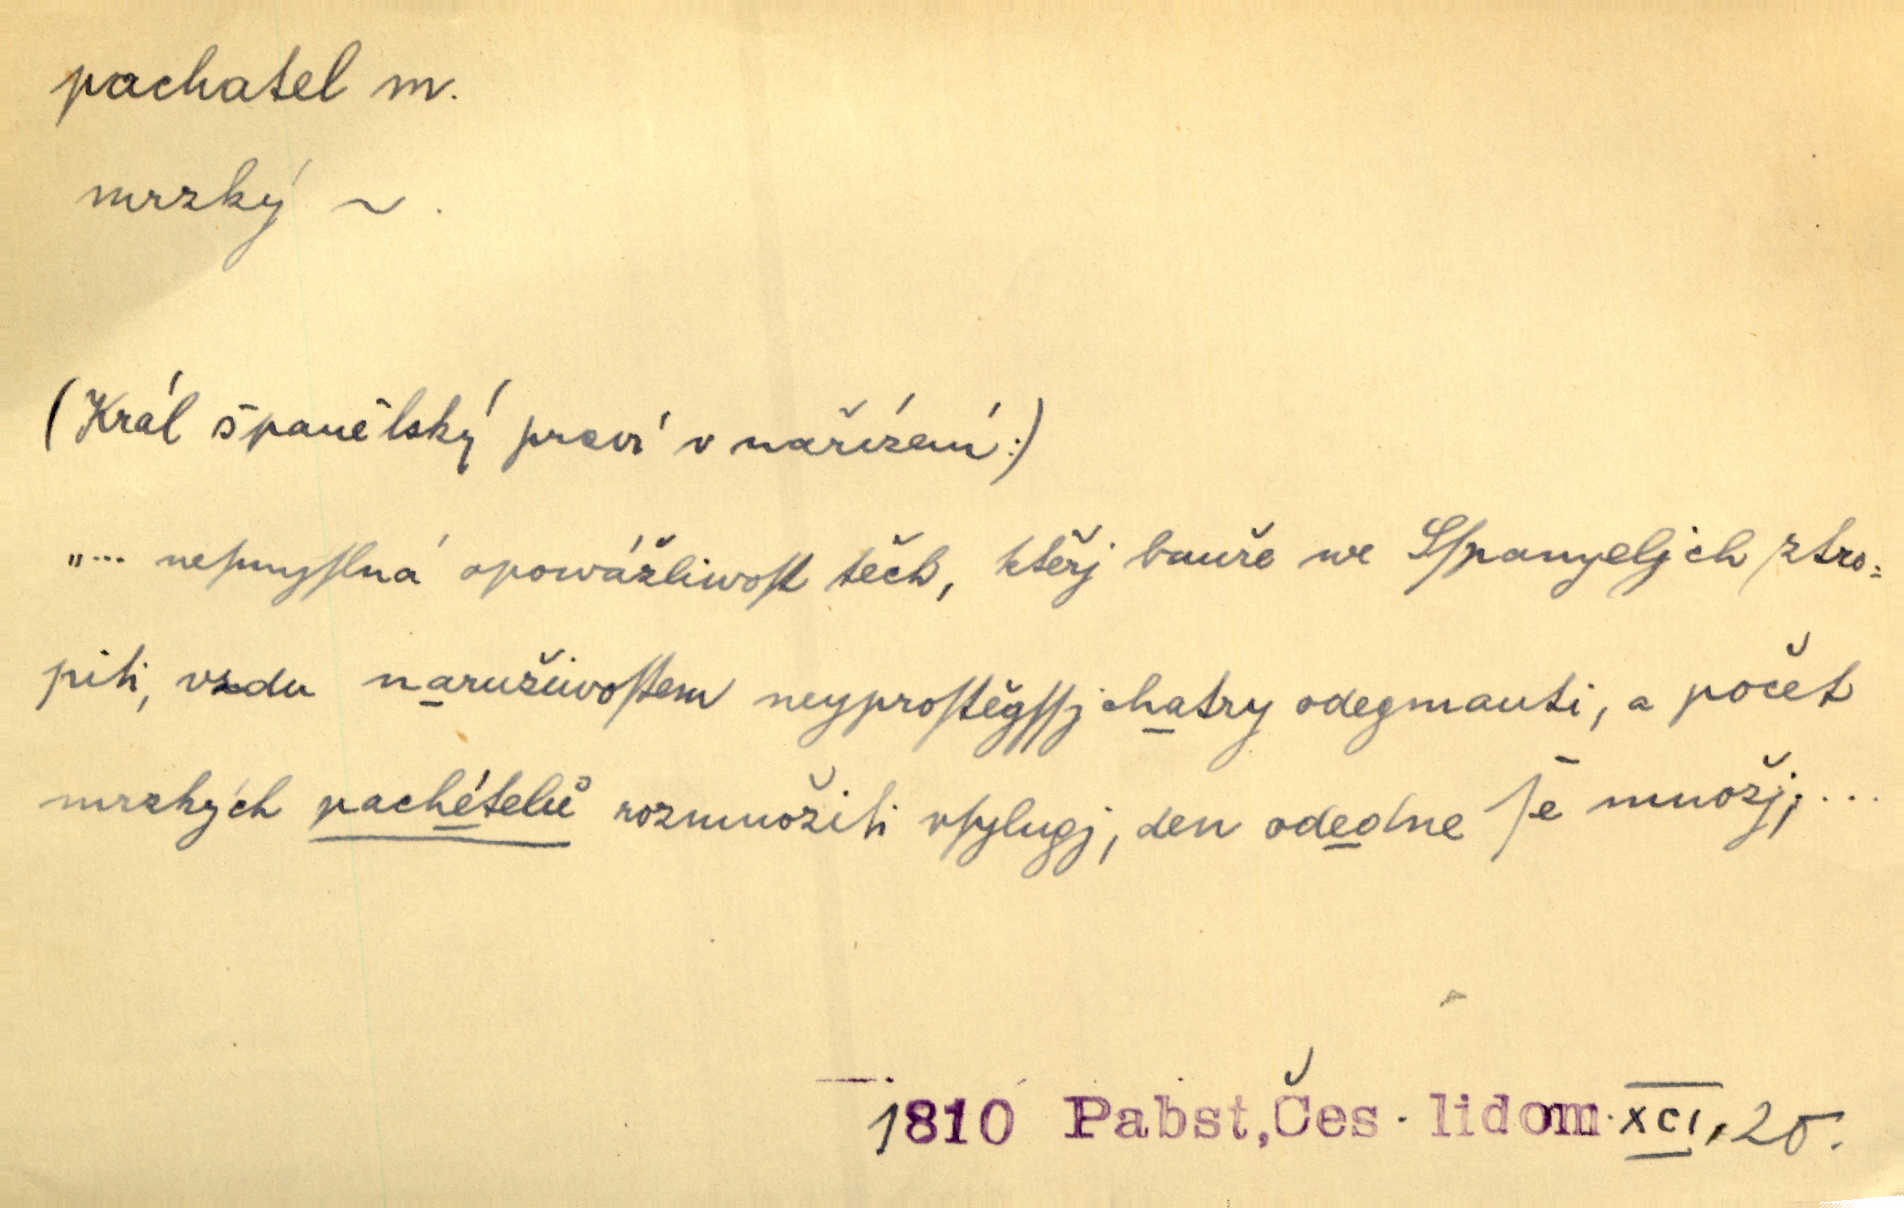 pachatel m.
mrzký ~.
(Král španělský praví v nařízení:)
„... neſmyſlná opowážliwoſt těch, ktěřj bauře we Sſpanyeljch ztro=
piti, vzdu naružiwoſtem neyproſtěgſſj chatry odegmauti, a počet
mrzkých pachételů rozmnožiti vſylugj, den odedne ſe množj; ...
1810 Pabst, Čes. lidom. XCI, 25.